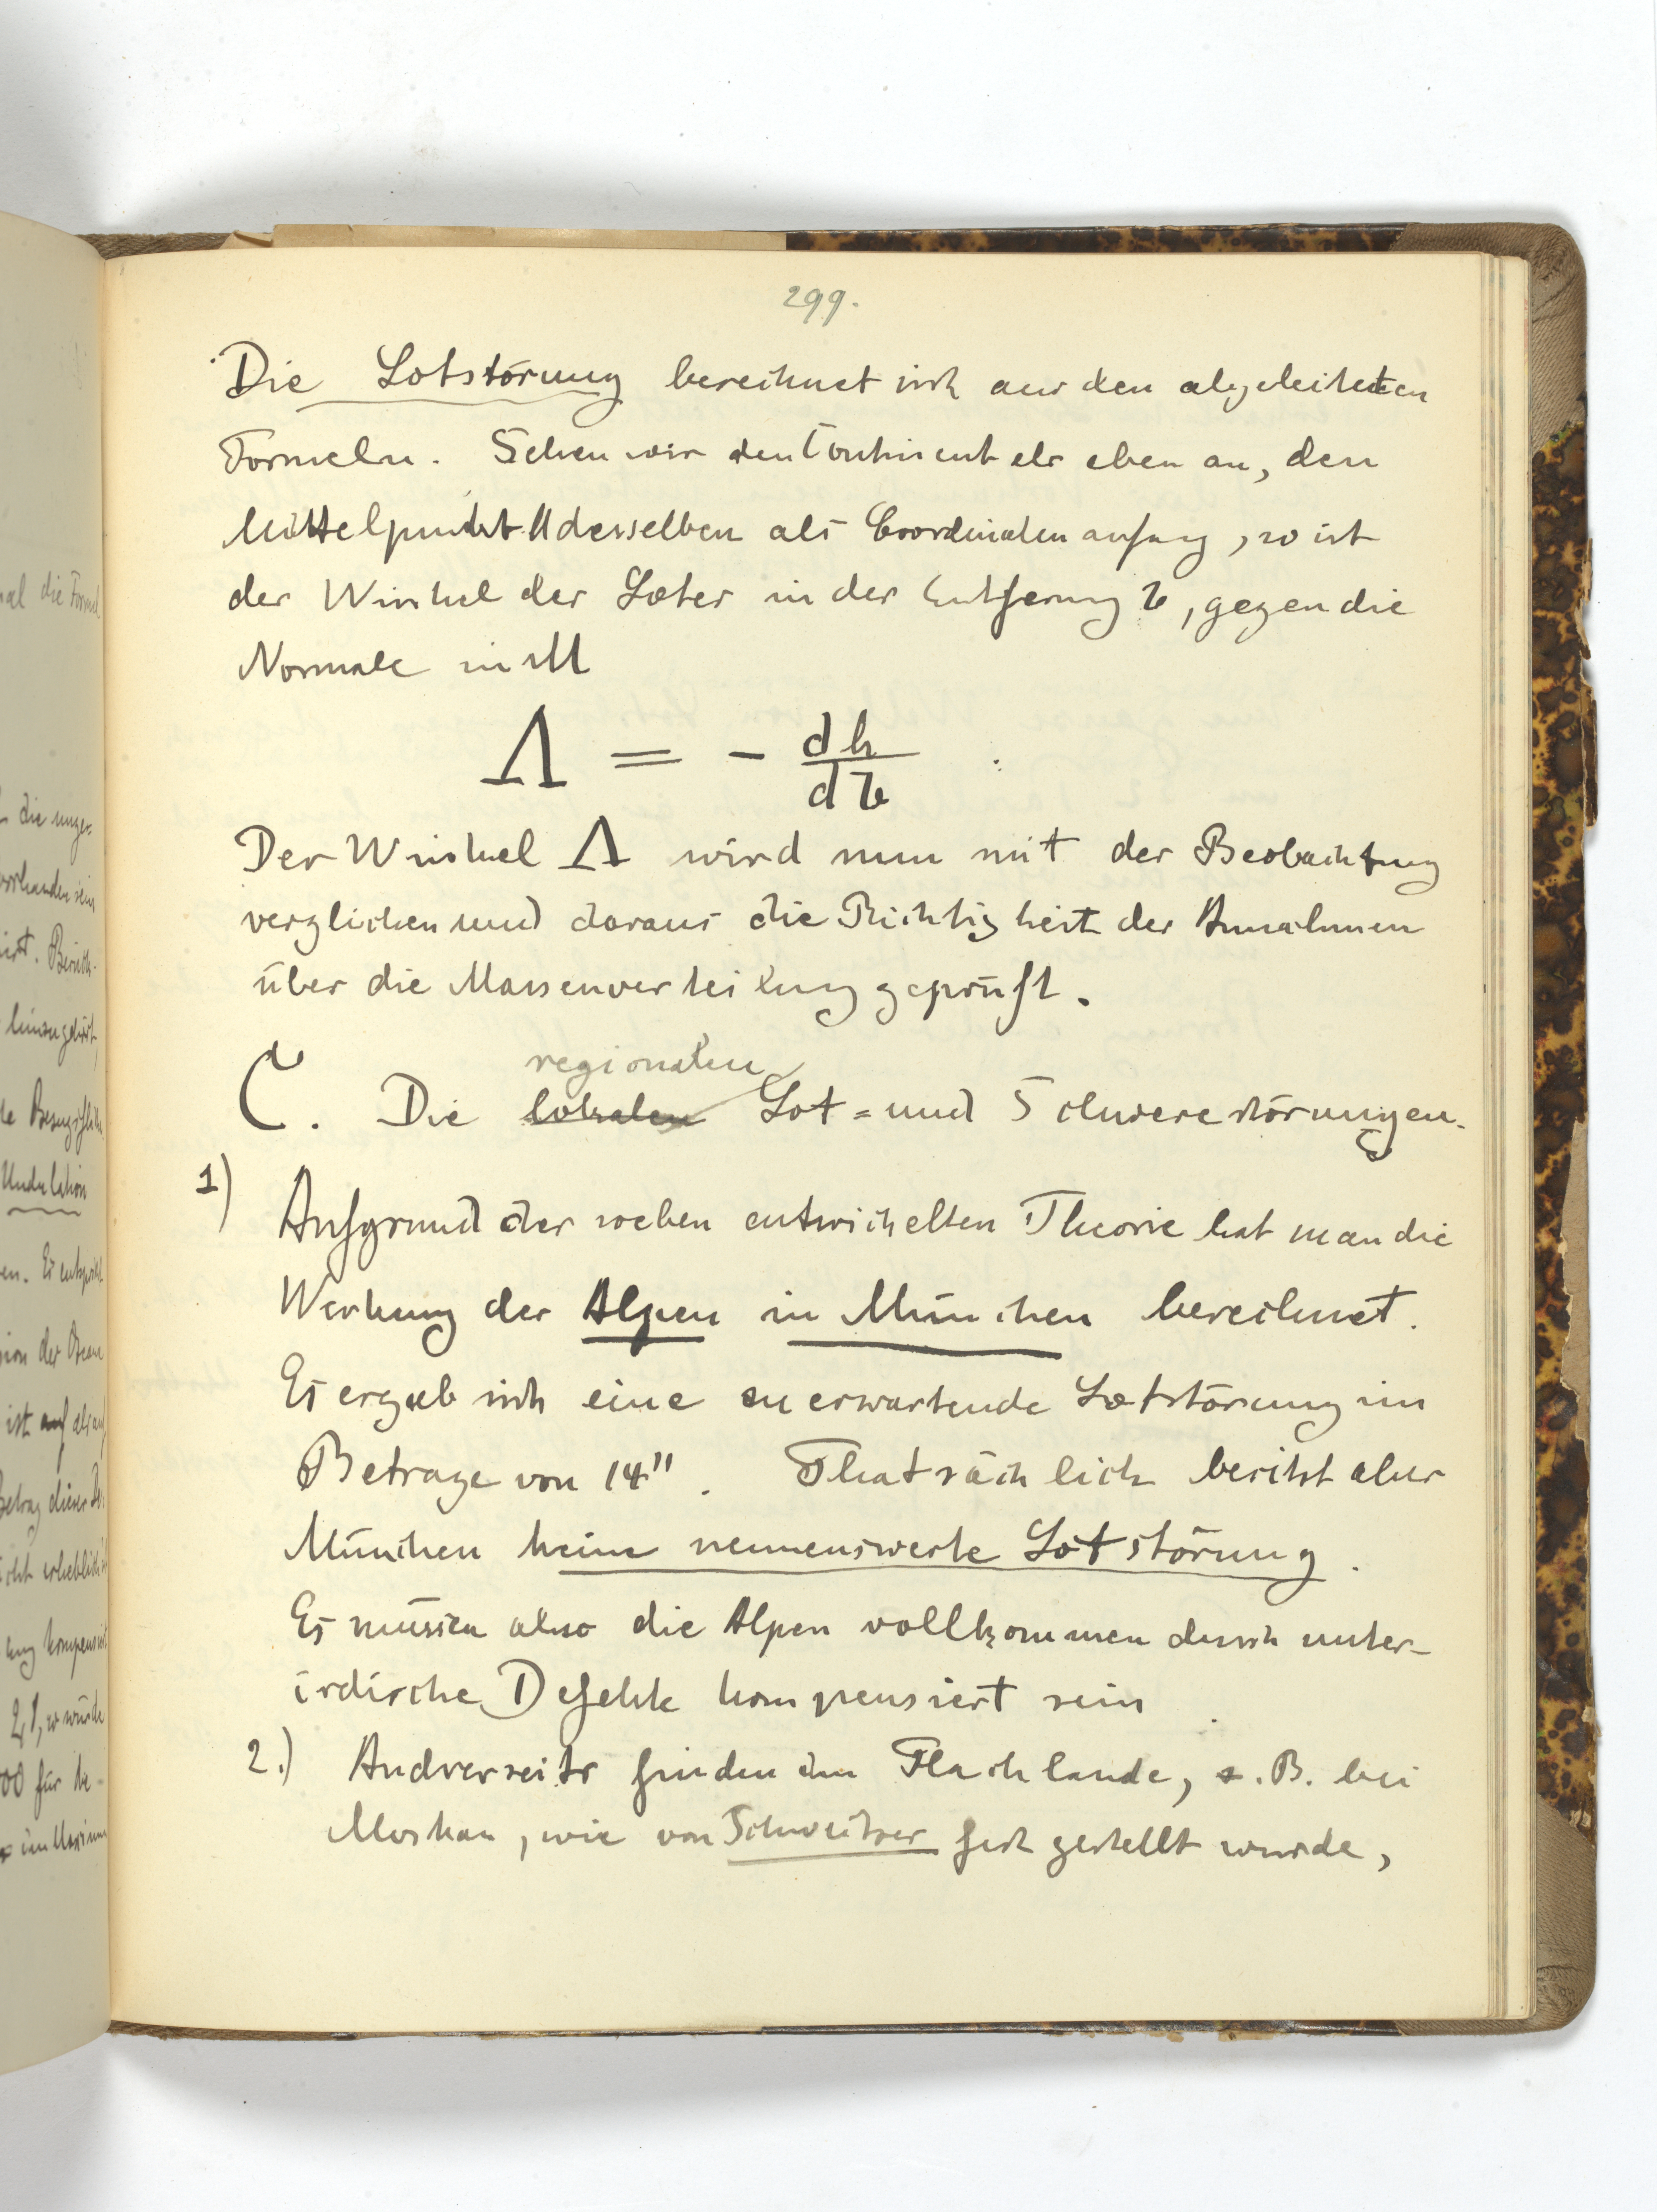 299.
Die Lotstörung berechnet sich aus den abgeleiteten
Formeln. Sehen wir den Continent als eben an, den
Mittelpunkt M desselben als Coordinatenanfang, so ist
der Winkel des Lotes in der Entfernung r, gegen die
Normale in M
Λ = - dh/dr .
Der Winkel Λ wird nun mit der Beobachtung
verglichen und daraus die Richtigkeit der Annahmen
über die Massenverteilung geprüft.
regionalen
C. Die lokalen Lot= und Schwerestörungen.
1) Aufgrund der soeben entwickelten Theorie hat man die
Wirkung der Alpen in München berechnet.
Es ergab sich eine zu erwartende Lotstörung im
Betrage von 14". Thatsächlich besitzt aber
München keine nennenswerte Lotstörung.
Es müssen also die Alpen vollkommen durch unter-
irdische Defekte kompensiert sein.
2.) Andrerseits finden im Flachlande, z.B. bei
Moskau, wie von Schweitzer fest gestellt wurde,
mal die Formel
die unge=
vorhanden sein
hinzugehört,
Undulation
ist auf als auf
Betrag dieser
00 für be-
im Maximum